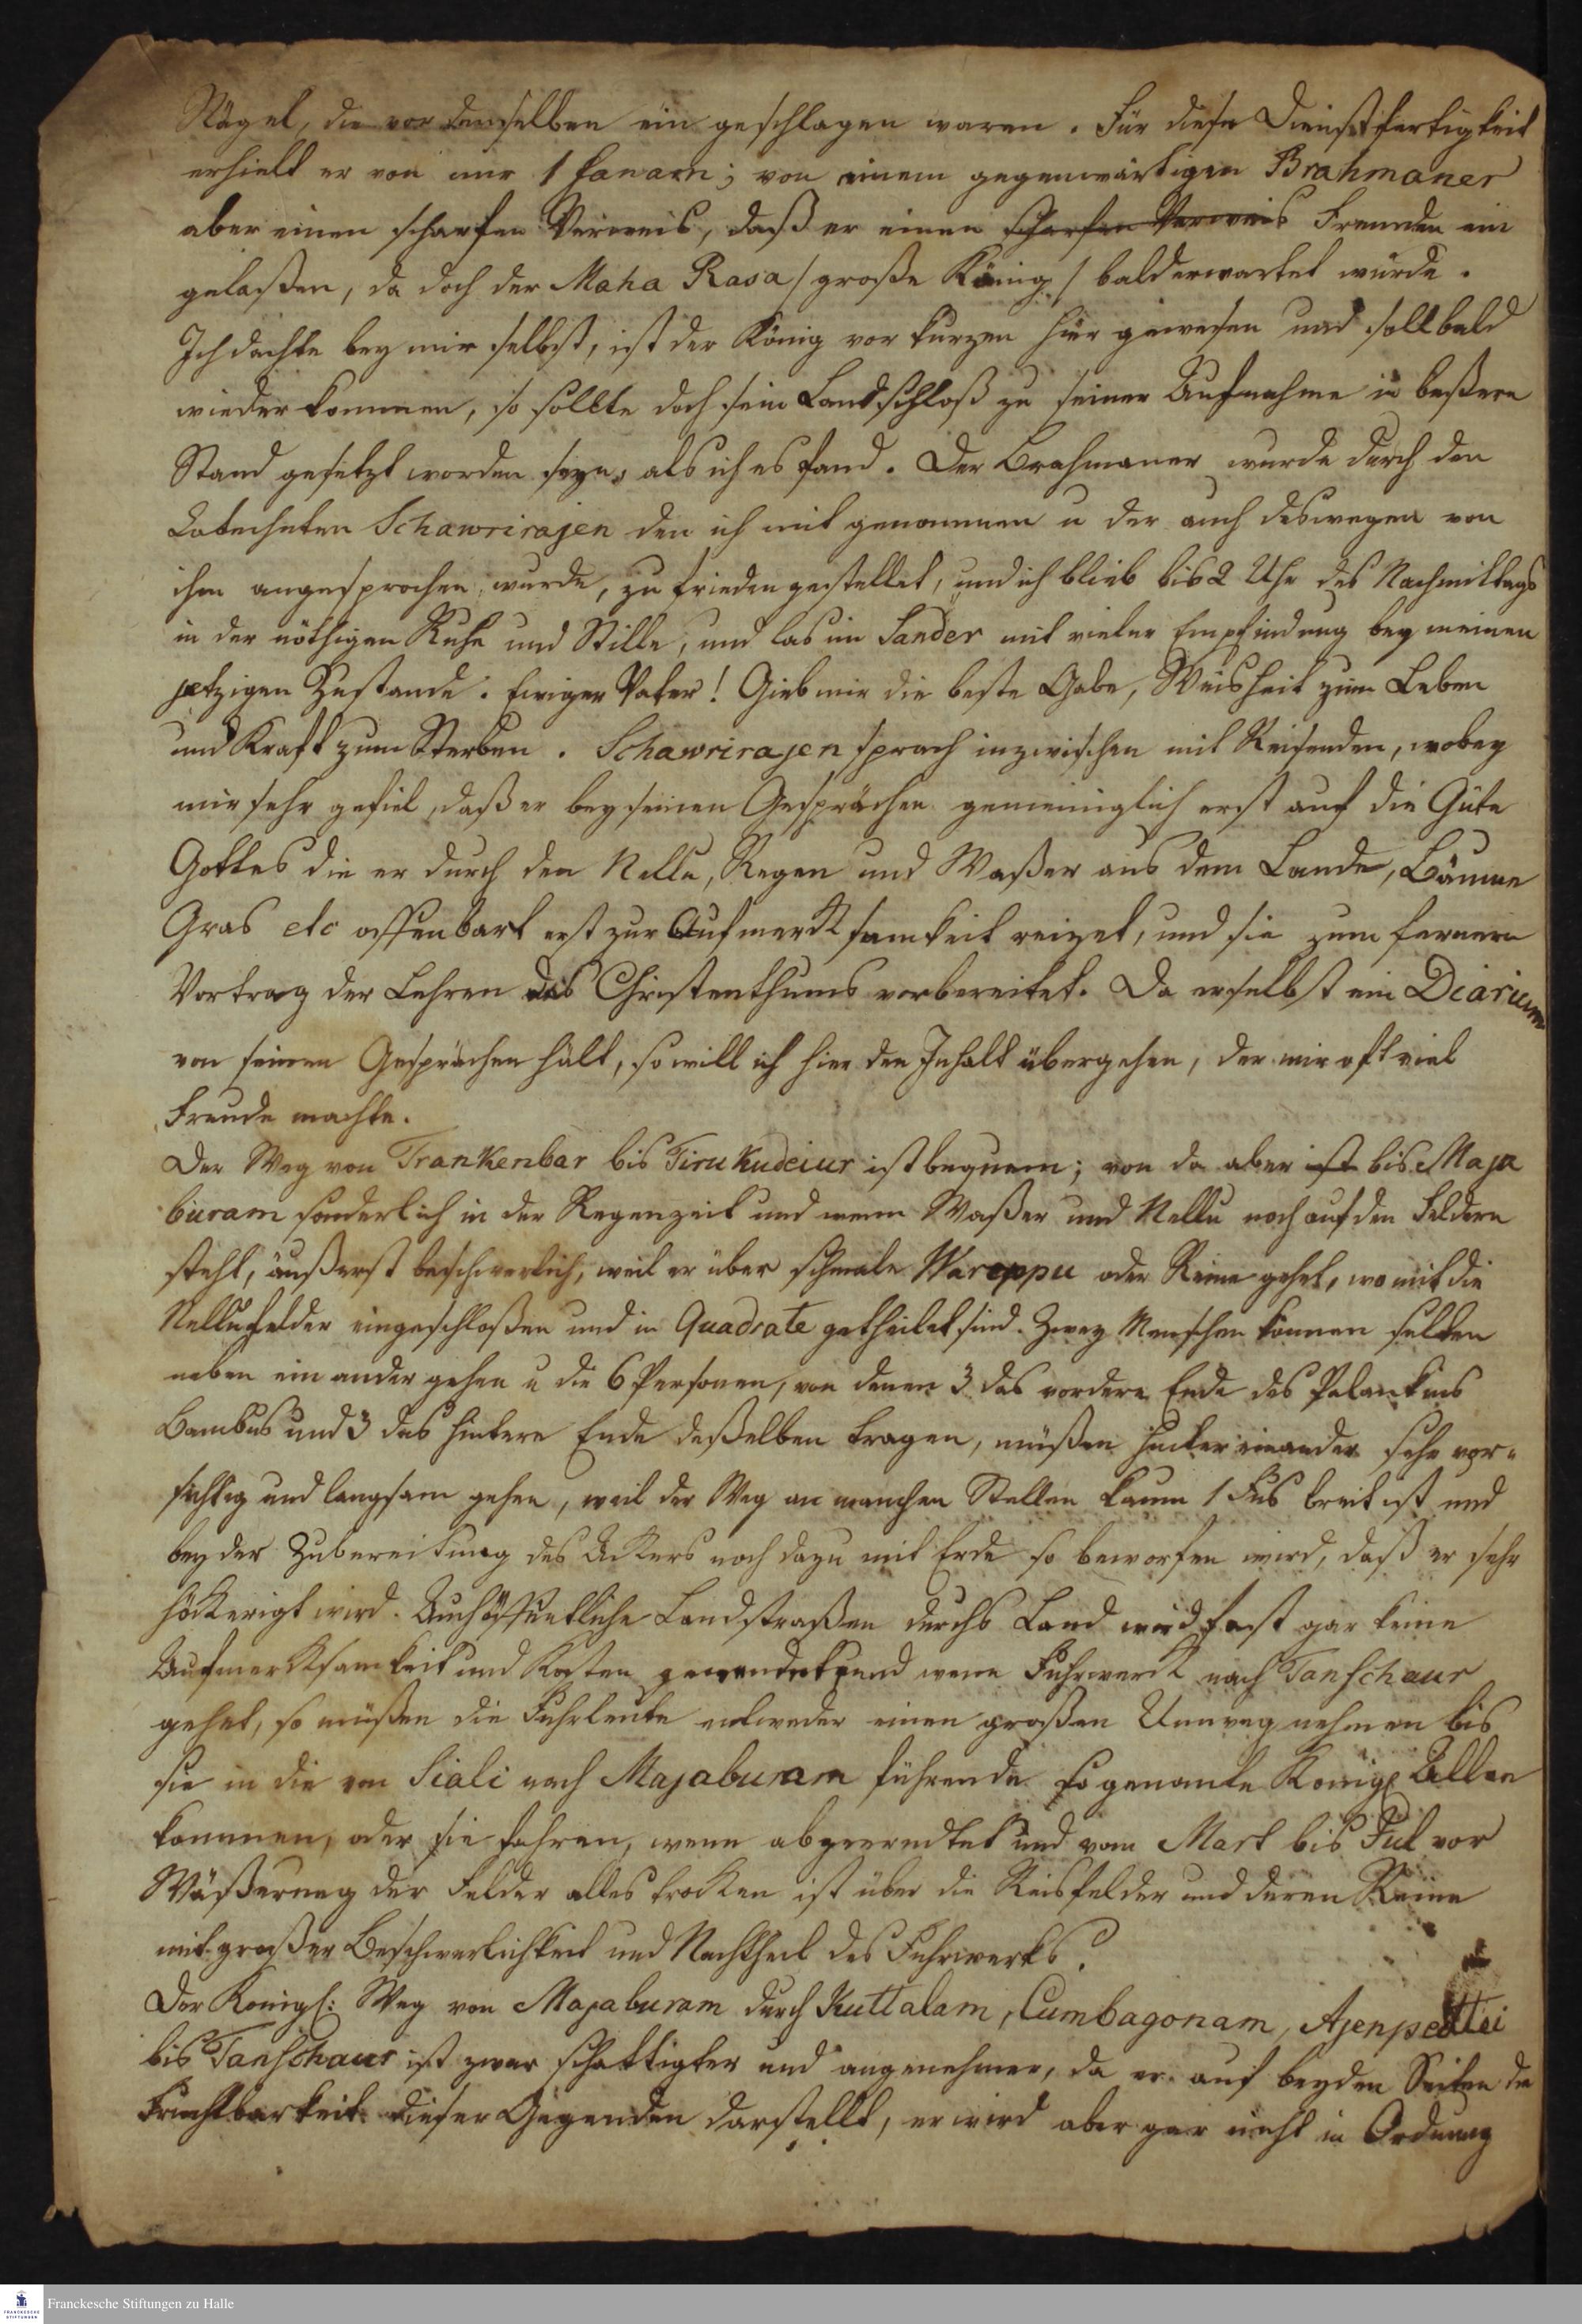 Nägel, die vor demselben ein geschlagen waren. Für diese Dienstfertigkeit
erhielt er von mir 1 fanam; von einem gegenwärtigen Brahmaner
aber einen scharfen Verweis, daß er einen scharfen Verweis Fremden ein
gelaßen, da doch der Maha Rasa / große König / bald erwartet würde.
Ich dachte bey mir selbst, ist der König vor kurzen hier gewesen und soll bald
wieder kommen, so sollte doch sein Landschloß zu seiner Aufnahme in beßern
Stand gesetzt worden seyn, als ich es fand. Der Brahmaner wurde durch den
Catecheten Schawrirajen den ich mit genommen u der auch deswegen von
ihm angesprochen wurde, zu frieden gestellet, und ich blieb bis 2 Uhr des Nachmittags
in der nöthigen Ruhe und Stille, und las im Sander mit vieler Empfindung bey meinen
jetzigen Zustande. Ewiger Vater! Gieb mir die beste Gabe, Weisheit zum Leben
und Kraft zum Sterben. Schawrirajen sprach inzwischen mit Reisenden, wobey
mir sehr gefiel, daß er bey seinen Gesprächen gemeiniglich erst auf die Güte
Gottes die er durch den Nellu, Regen und Waßer aus dem Lande, Bäume
Gras etc offenbart erst zur Aufmerksamkeit reizet, und sie zum fernern
Vortrag der Lehren des Christenthums vorbereitet. Da er selbst ein Diarium
von seinen Gesprächen hält, so will ich hier den Inhalt übergehen, der mir oft viel
Freude machte.
Der Weg von Trankenbar bis Tirukudeiur ist bequem; von da aber ist bis Maja
buram sonderlich in der Regenzeit und wenn Waßer und Nellu noch auf den Feldern
steht, äußerst beschwerlich, weil er über schmale Wareppu oder Reine gehet, womit die
Nellufelder eingeschloßen und in Quadrate getheilet sind. Zwey Menschen können selten
neben ein ander gehen u die 6 Personen, von denen 3 das vordere Ende des Palankins
Bambus und 3 das hintere Ende deßelben tragen, müßen hinter einander sehr vor-
sichtig und langsam gehen, weil der Weg an manchen Stellen kaum 1 Fus breit ist und
bey der Zubereitung des Ackers noch dazu mit Erde so beworfen wird, daß er sehr
höckerigt wird. Auch öffentliche Landstraßen durchs Land wird fast gar keine
Aufmerksamkeit und Kosten gewendet und wenn Fuhrwerck nach Tanschaur
gehet, so müßen die Fuhrleute entweder einen großen Umweg nehmen bis
sie in die von Siali nach Majaburam führende so genante Königl Allee
kommen, oder sie fahren, wenn abgeerndtet und vom Mart bis Jul vor
Wäßerung der Felder alles trocken ist über die Reisfelder und deren Reine
mit großer Beschwerlichkeit und Nachtheil des Fuhrwerks.
Der Königl: Weg von Majaburam durch Kuttalam, Cumbagonam, Ajenpettei
bis Tanschaur ist zwar schattigter und angenehmer, da er auf beyden Seiten die
Fruchtbarkeit dieser Gegenden darstellt, er wird aber gar nicht in Ordnung
FRANCKESCHE
STIFTUNGEN
Franckesche Stiftungen zu Halle